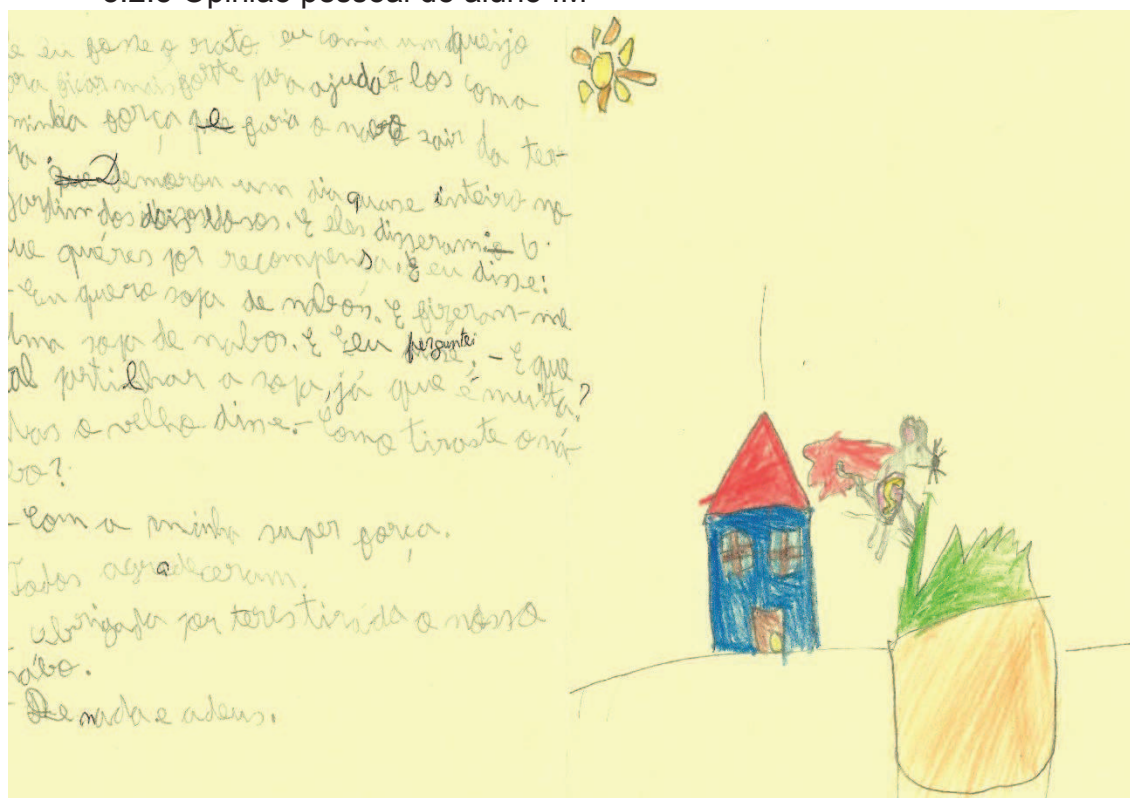 5.2.5 Opinião pessoal do aluno I.M
e eu fosse o rato eu comia um queijo
ora ficar mais forte para ajudá-los com a
minha força e faria o nabo sair da ter-
ra. Demorou um dia quase inteiro no
jardim dos dois idosos. E eles disseram:
ue quéres por recompensa. E eu disse:
- Eu quero sopa de nabos. E fizeram-me
uma sopa de nabos. E eu perguntei - E que
al partilhar a sopa, já que é muita?
Mas o velho disse. - Como tiraste o ná-
bo?
- Com a minha super força.
Todos agradeceram.
obrigada por teres tirado o nosso
nábo.
- De nada e adeus.